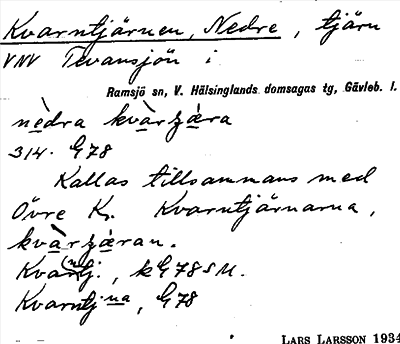 Kvarntjärnen, Nedre, tjärn
VNV Tevansjön i
Ramsjö sn, V. Hälsinglands domsagas tg, Gävleb. l.
nèdra kvàrʒæra
314. G78
Kallas tillsammans med
Övre K. Kvarntjärnarna,
kvàrʒæran.
Kva(rn)tj., k G78 SU.
Kvarntjna, G78
LARS LARSSON 1934